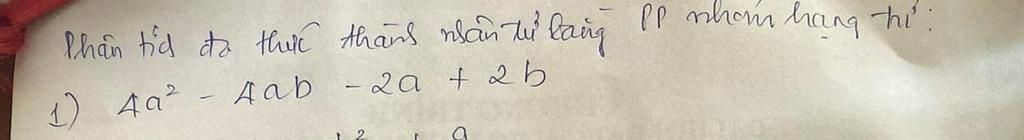 Phân tích đa thức thành nhân tử bằng PP nhóm hạng tử:
1) 4a² - 4ab - 2a + 2b